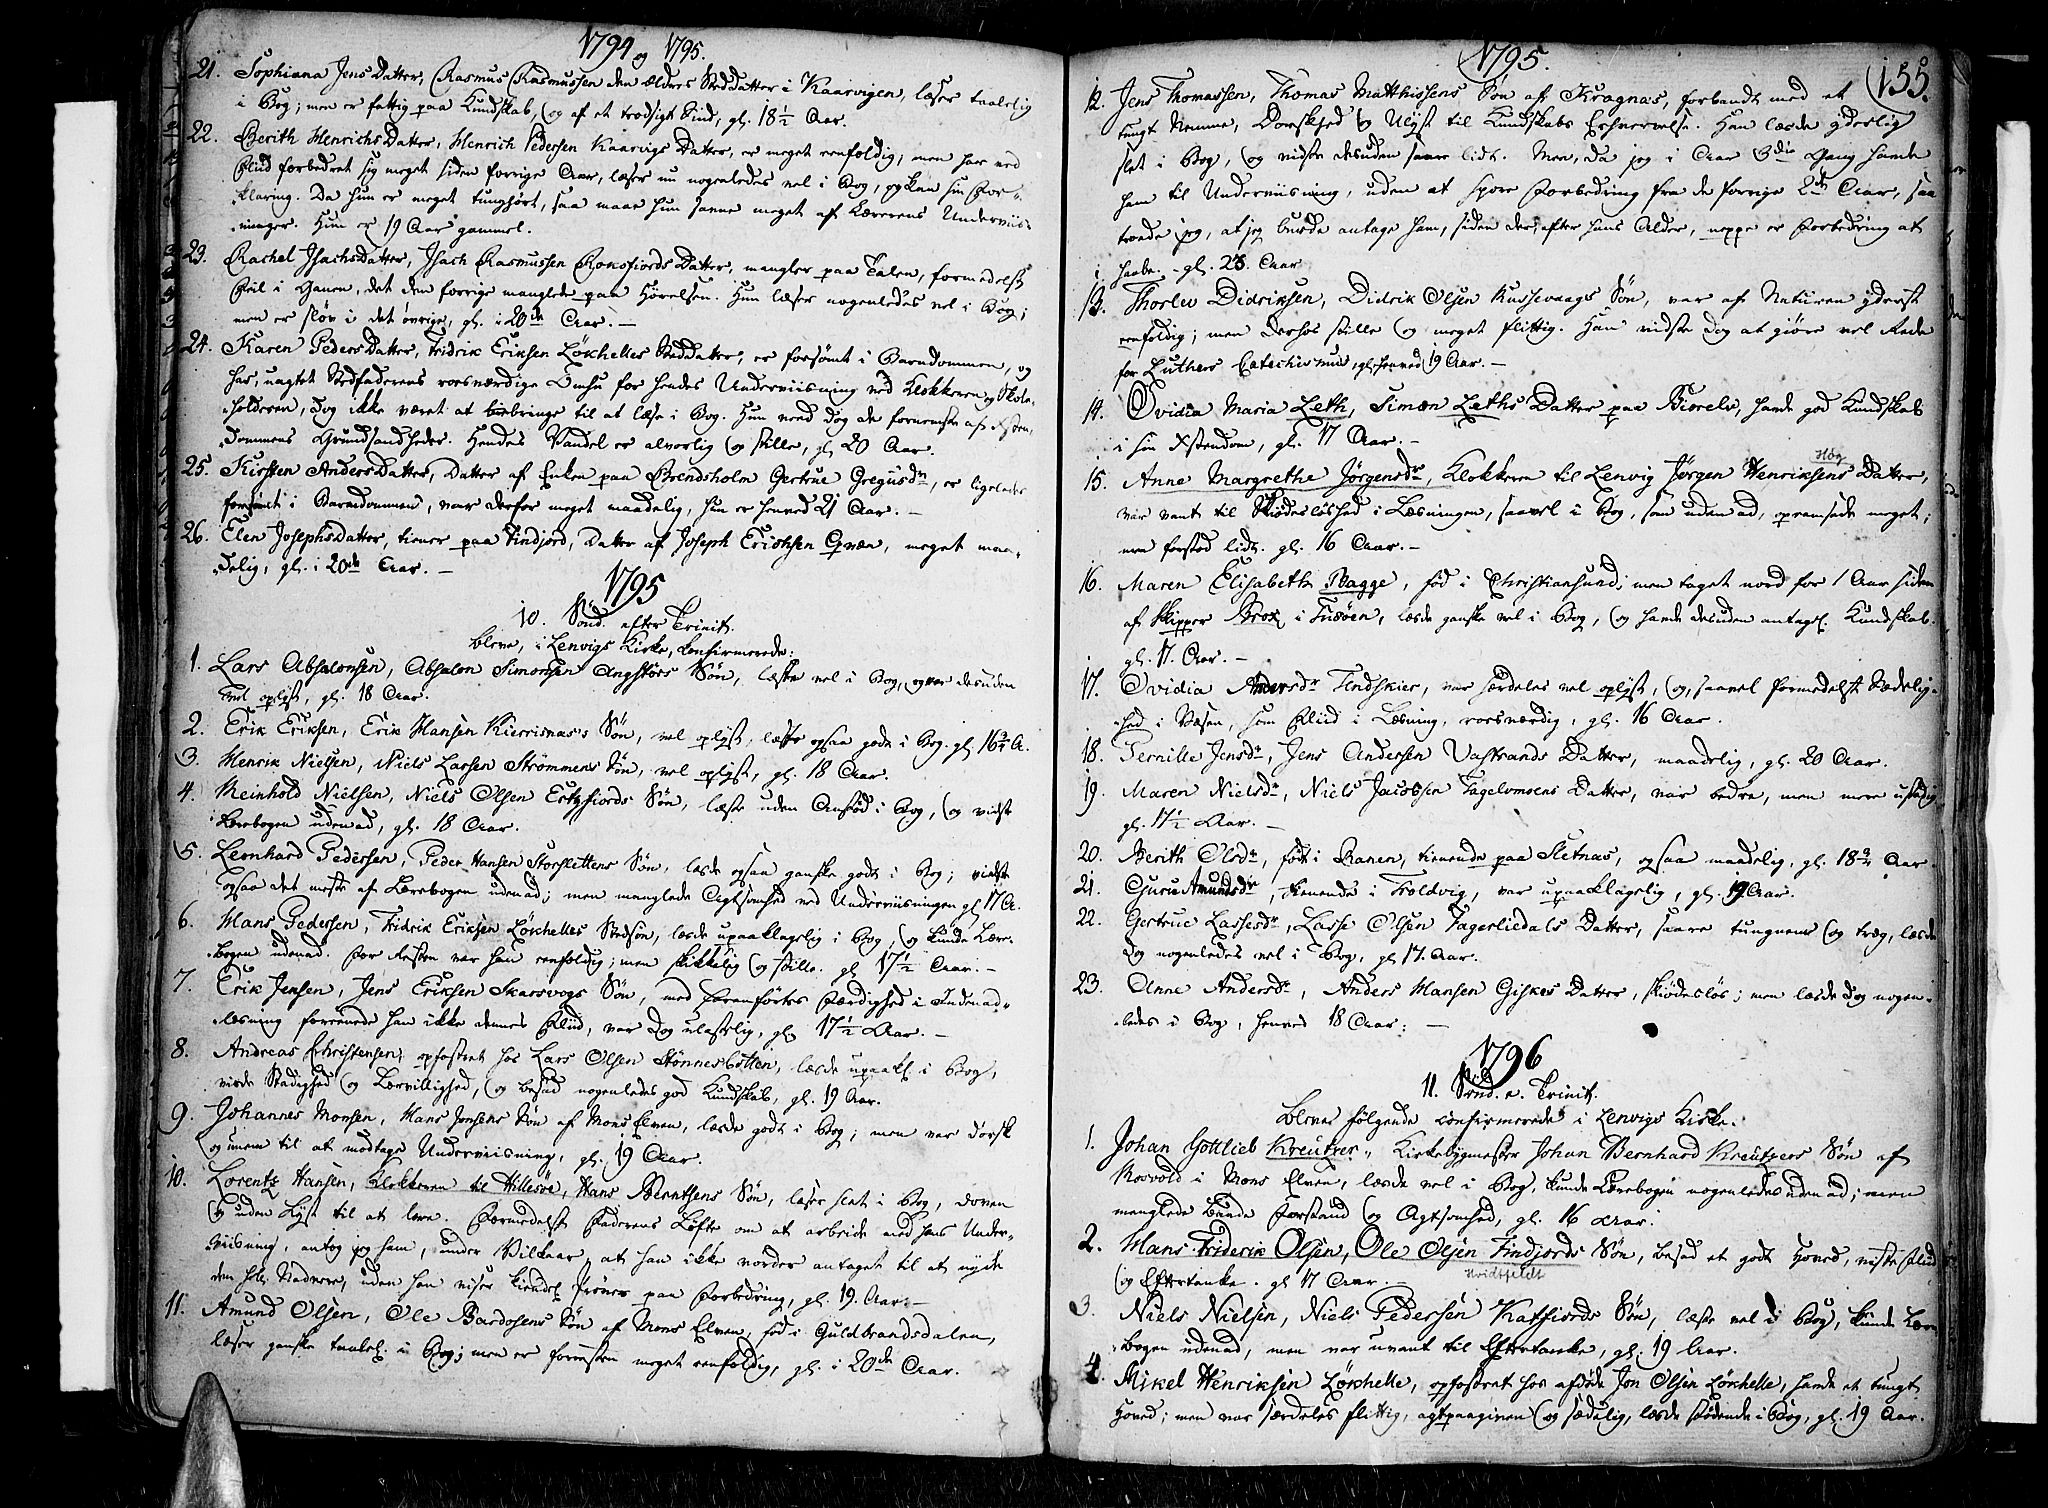 1794 og 1795.
21. Sophiana Jens Datter, Rasmus Rasmussen den ældres StedDatter i Kaarvigen, læser taalelig
i Bog; men er fattig paa Kundskab, og af et trodsigt Sind, gl. 18½ Aar.
22. Berith Henrichs Datter, Henrich Pedersen Kaarvigs Datter, er meget eenfoldig, men har ved
Flid forbedret sig meget siden forrige Aar, læser nu nogenledes vel i Bog, og kan sin For-
klaring. Da hun er meget tunghørt, saa maae hun savne meget af Lærerens Underviis-
ninger. Hun er 19 Aar gammel.
23. Rachel Isachsdatter, Isach Rasmussen Roksfiords Datter, mangler paa Talen, formedelst
Feil i Ganen, det den forrige manglede paa Hørelsen. Hun læser nogenledes vel i Bog;
men er sløv i det øvrige, gl. i 20de Aar. —
24. Karen PedersDatter, Fridrik Eriksen Løkhelles StedDatter, er forsømt i Barndommen, og
har, uagtet Stedfaderens roesværdige Omhu for hendes Underviisning ved Klokkeren og Skole-
holderen, dog ikke været at bibringe til at læse i Bog. Hun veed dog de fornemste af Xsten-
dommens Grundsandheder. Hendes Vandel er alvorlig og stille, gl. 20 Aar.
25. Kirsten AndersDatter, Datter af Enken paa Brendsholm Gertrue Gregusdr, er ligeledes
forsømt i Barndommen, var derfor meget maadelig, hun er henved 21 Aar. —
26. Elen Josephsdatter, tiener paa Findjord, Datter af Joseph Erichsen Qvæn, meget maa-
delig, gl. i 20de Aar. —
1795
10. Sønd. efter Trinit.
bleve, i Lenvigs Kirke, Confirmerede:
1. Lars Absalonsen, Absalon Simonsen Angstøvs Søn, læste vel i Bog, og var desuden
vel oplyst, gl. 18 Aar.
2. Erik Eriksen, Erik Hansen Kierrisnæs's Søn, vel oplyst, læste ogsaa godt i Bog. gl. 16¾ A.
3. Henrik Nielsen, Niels Larsen Strømmens Søn, vel oplyst, gl. 18 Aar.
4. Meinhold Nielsen, Niels Olsen Søn, læste uden Anstød i Bog, og vidste
Lærebogen udenad, gl. 18 Aar.
5. Leonhard Pedersen, Peder Hansen Storslettens Søn, læsde ogsaa ganske godt i Bog; vidste
ogsaa det meste af Lærebogen udenad; men manglede Agtsomhed ved Underviisningen gl. 17 A.
6. Hans Pedersen, Fridrik Eriksen Løkhelles Stedsøn, læsde upaaklagelig i Bog, og kunde Lære-
bogen udenad. For Resten var han eenfoldig; men skikkelig og stille. gl. 17½ Aar. —
7. Erik Jensen, Jens Eriksen Skarsvogs Søn, med Færdighed i Indenad-
læsning forenede han ikke dennes Flid, var dog ulastelig, gl. 17½ Aar. —
8. Andreas Christensen, opfostret hos Lars Olsen Stønnesbotten, læsde upaakl. i Bog,
viiste Stadighed og Lærvillighed, og besad nogenledes god Kundskab, gl. 19 Aar.
9. Johannes Monsen, Hans Jonsens Søn af Mons Elven, læsde godt i Bog; men var dorsk
og unem til at modtage Underviisning, gl. 19 Aar.
10. Lorentz Hansen, Klokkeren til Hillesøe, Hans Berntsens Søn, læser slet i Bog, doven
og uden Lyst til at lære. Formedelst Faderens Løfte om at arbeide ved hans Under-
viisning, antog jeg ham, under Vilkaar, at han ikke vorder antaget til at nyde
den hel. Nadvere, uden han viser kiendel. Prøver paa Forbedring, gl. 19. Aar. —
11. Amund Olsen, Ole Bardosens Søn af Mons Elven, fød i Guldbrandsdalen,
læser ganske taalel. i Bog; men er forresten meget eenfoldig, gl. i 20de Aar.
1795.
155.
12. Jens Thomassen, Thomas Matthissens Søn af Kragnæs, forbandt med et
tungt Nemme, Dorskhed og Ulyst til Kundskabs Erhvervelse. Han læsde yderlig
slet i Bog, og vidste desuden saare lidt. Men, da jeg i Aar 3die Gang havde
ham til Underviisning, uden at spore Forbedring fra de forrige 2de Aar, saa
troede jeg, at jeg burde antage ham, siden der, efter hans Alder, neppe er Forbedring at
haabe. gl. 23. Aar
13. Thorlev Didriksen, Didrik Olsen Kussevaags Søn, var af Naturen yderst
eenfoldig; men derhos stille og meget flittig. Han vidste dog at giøre vel Rede
for Luthers Catechismus, gl. henved 19 Aar. —
14. Ovidia Maria Leth, Simon Leths Datter paa Biorelv, havde god Kundskab
i sin Xstendom, gl. 17 Aar. —
Høg
15. Anne Margrethe Jörgensdr, Klokkeren til Lenvig Jørgen Henriksens Datter,
var vant til Skiødesløshed i Læsningen, saavel i Bog, som udenad, opramsede meget;
men forstod lidt. gl. 16 Aar. —
16. Maren Elisabeth Bagge, fød i Christiansund; men taget nord for 1 Aar siden
af Skipper Brox i Tusøen, læsde ganske vel i Bog, og havde desuden antagel. Kundskab.
gl. 17. Aar. —
17. Ovidia Andersdr Findskier, var særdeles vel oplyst, og, saavel formedelst Sædelig-
hed i Væsen, som Fliid i Læsning, roesværdig, gl. 16 Aar.
18. Pernille Jensdr, Jens Andersen Vastrands Datter, maadelig, gl. 20 Aar.
19. Maren Nielsdr, Niels Jacobsen Fagelvmoens Datter, var bedre, men mere ustadig
gl. 17½ Aar. —
20. Berith Olsdr, født i Ranen, tienende paa Sletnæs, ogsaa maadelig, gl. 18¾ Aar.
21. Guru Amundsdr, tienende i Troldvig, var upaaklagelig, gl. 19 Aar.
22. Gertrue Lassesdr, Lasse Olsen Fagerliedals Datter, saare tungnem og træg, læsde
dog nogenledes vel i Bog, gl. 17. Aar.
23. Anne Andersdr, Anders Hansen Giskes Datter, skiødesløs; men læsde dog nogen-
ledes i Bog, henved 18 Aar: —
1796
11. Sønd. e. Trinit.
bleve følgende confirmerede i Lenvigs Kirke.
1. Johan Gottlieb Kreutzer, Kirkebygmester Johan Bernhard Kreutzers Søn af
Moevold i Mons Elven, læsde vel i Bog, kunde Lærebogen nogenledes udenad; men
manglede baade Forstand og Agtsomhed, gl. 16 Aar.
2. Hans Friderik Olsen, Ole Olsen Findjords Søn, besad et godt Hoved, viste Fliid
Hvidtfeldt
og Eftertanke. gl. 17 Aar.
3. Niels Nielsen, Niels Pedersen Katfiords Søn, læste vel i Bog, kunde Lære-
bogen udenad, men var uvant til Eftertanke, gl. 19 Aar.
4. Mikel Henriksen Løkhelle, opfostret hos afdøde Jon Olsen Løkhelle, havde et tungt
Hoved; men var særdeles flittig, agtpaagiven og sædelig, læsde stødende i Bog, gl. 19 Aar.